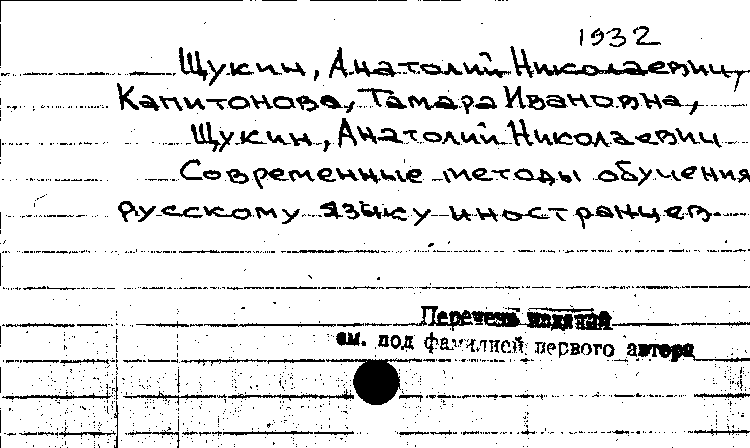 1932
Щукин, Анатолий Николаевич,
Капитонова, Тамара Ивановна,
Щукин, Анатолий Николаевич
Современные методы обучения
русскому языку иностранцев.
Перечень изданий
см. под фамилией первого автора